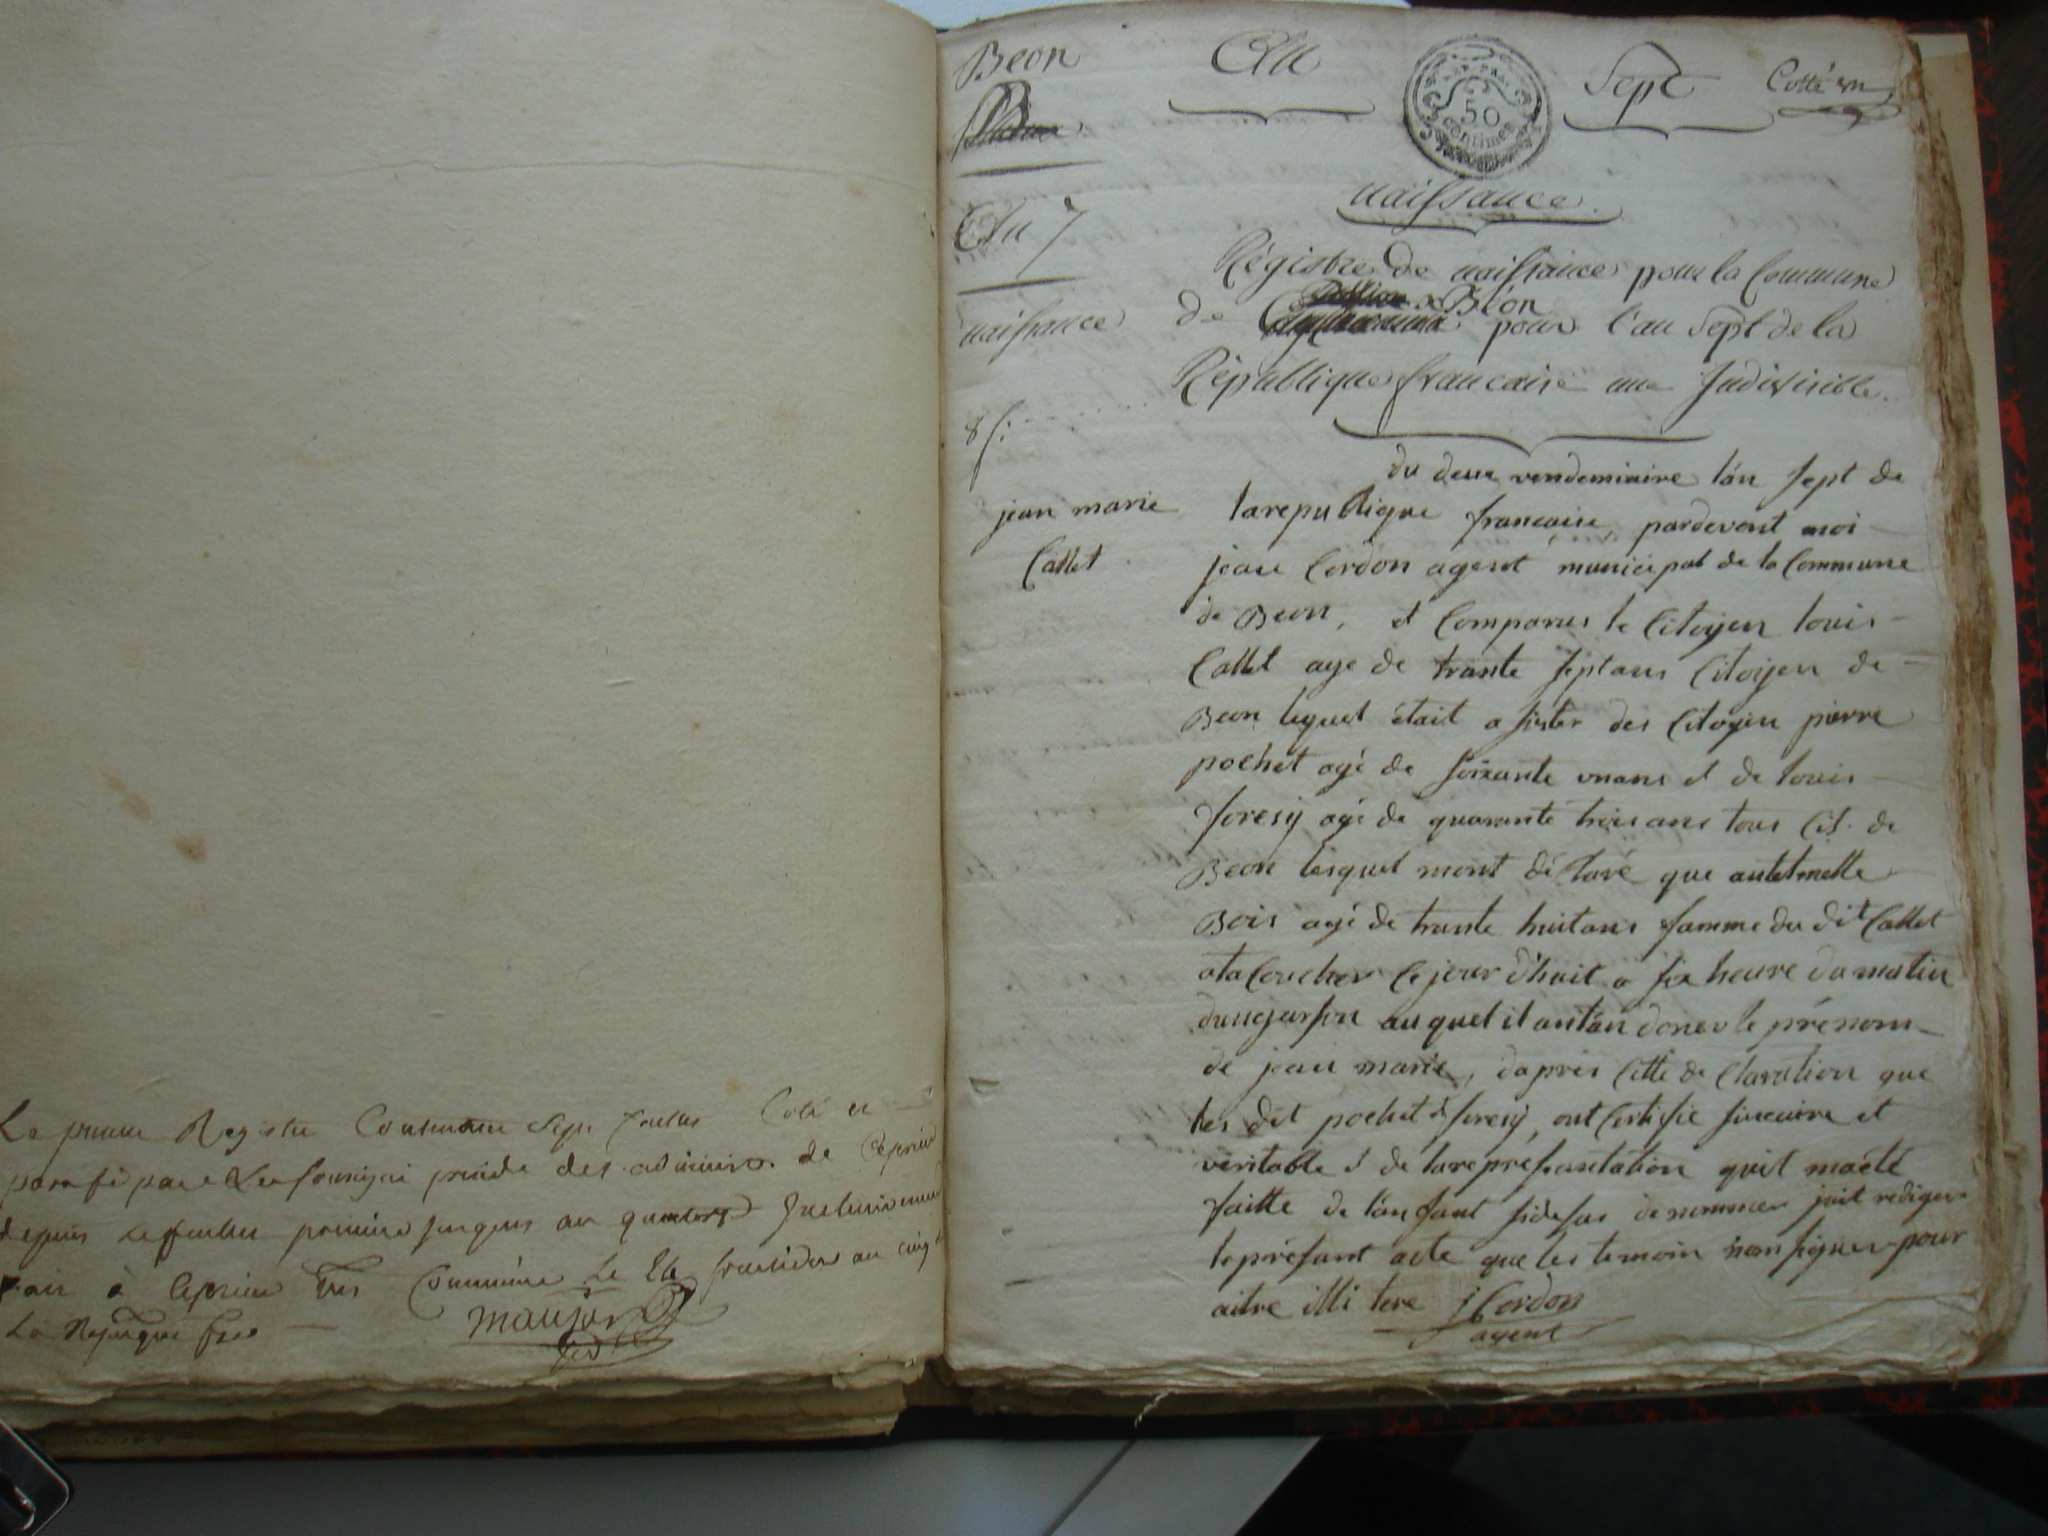 Le présent Registre Contenant Sept feuilles Coté et
paraffé par le soussigné présidt des administ. de Ceyzérieu
depuis le feuillet premier jusques au
fait à Ceyzérieu Commune le 24 fructidor an cinq de
La Repuque frse
maujot
Beon
An
50
centimes
Sept
Cotté un
An 7
naissance
naissance
Régistre de naissances pour la Commune
de Béon pour l'an Sept de la
République francaise une Indivisible.
8 f:
jean marie
Callet
du deux vendemiaire l'an sept de
larepublique francaise, pardevent moi
jean Cordon agent municipal de la Commune
de Beon, et Comparus le Citoyen louis
Callet age de trante septans Citoyen de
Beon lequel était a sister des Citoyen pierre
pochet agé de soixante unans et de louis
foresy agé de quarante troisans tous Cit. de
Beon lesquel mont déClaré que antelmette
Bois agé de trante huitans famme du dit Callet
ata Coucher Cejour dhuit a six heure du matin
dungarson auquel il antán doner le prénom
de jean marie, dapres Cette de Claration que
les dit pochet et foresy, ont Certifie sincaire et
veritable et de larepresantation quil maété
faitte de lánfant sidesus denommer jait rediger
lepresant acte que les temoin nom signer pour
aitre illi tere j Cordon
agent